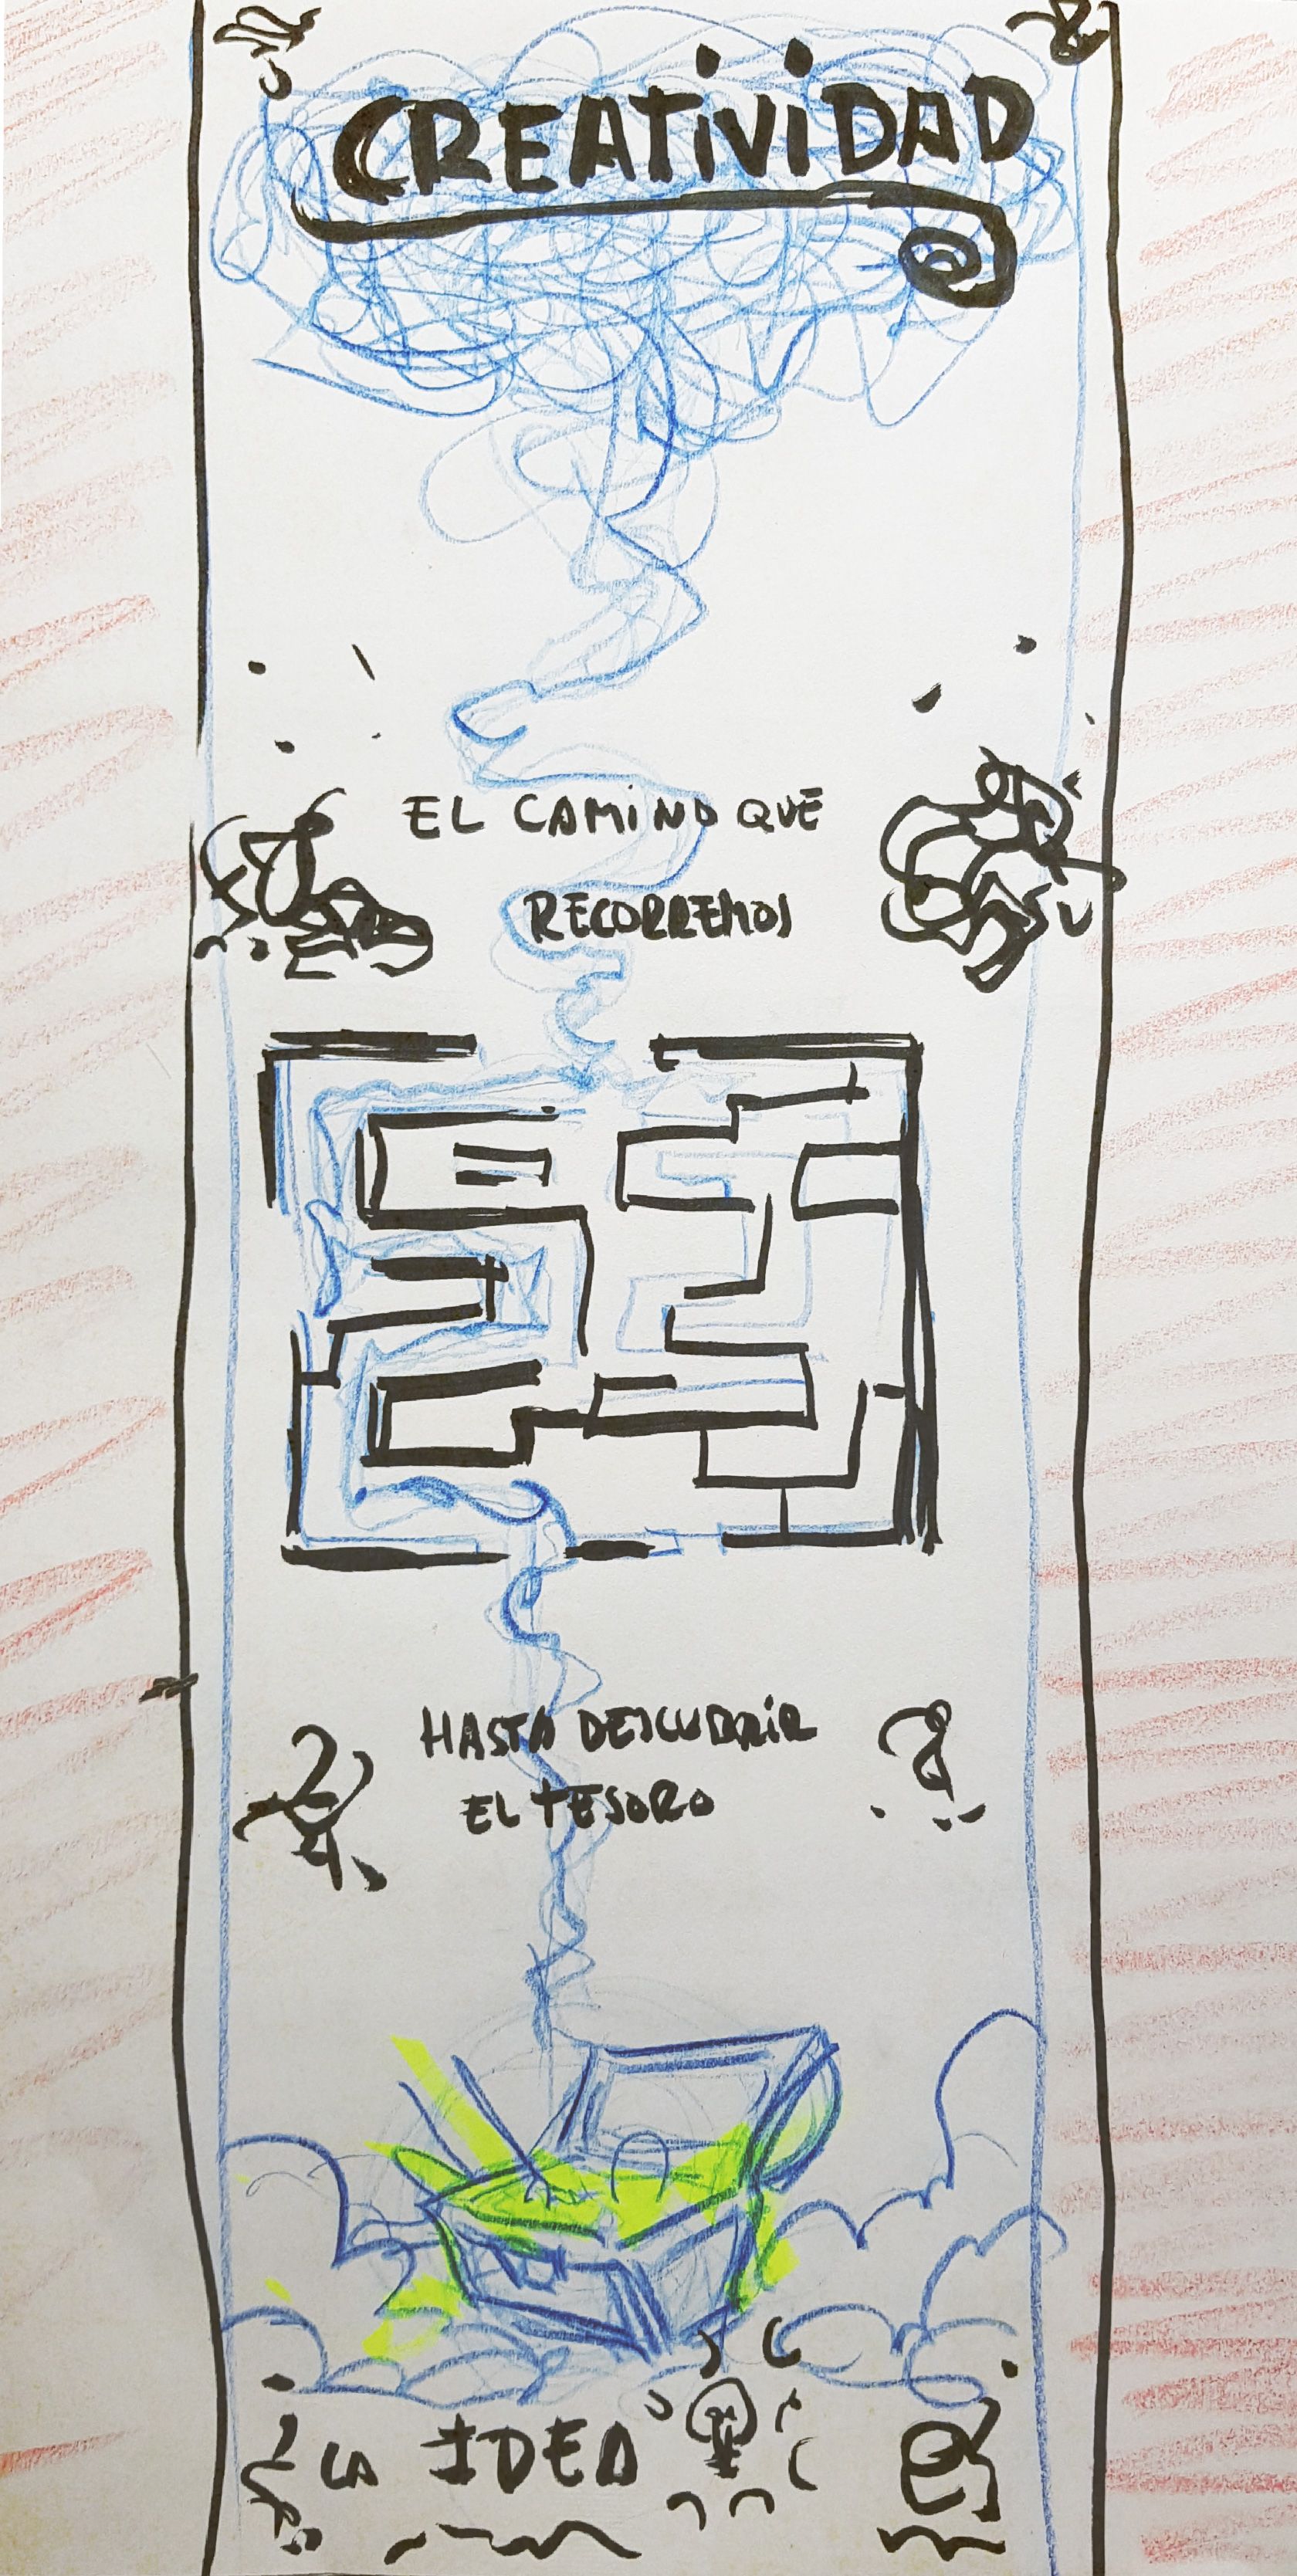 CREATIVIDAD
EL CAMINO QUE
RECORREMOS
HASTA DESCUBRIR
EL TESORO
LA IDEA